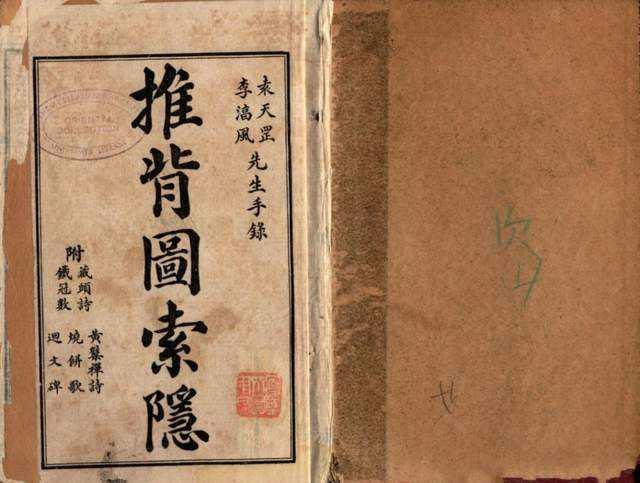 袁天罡
李湻風
先生手錄
推背圖索隱
附
藏頭詩
鐵冠數
黃蘗禪詩
燒餅歌
迴文碑
ORIENTAL
COLLECTION